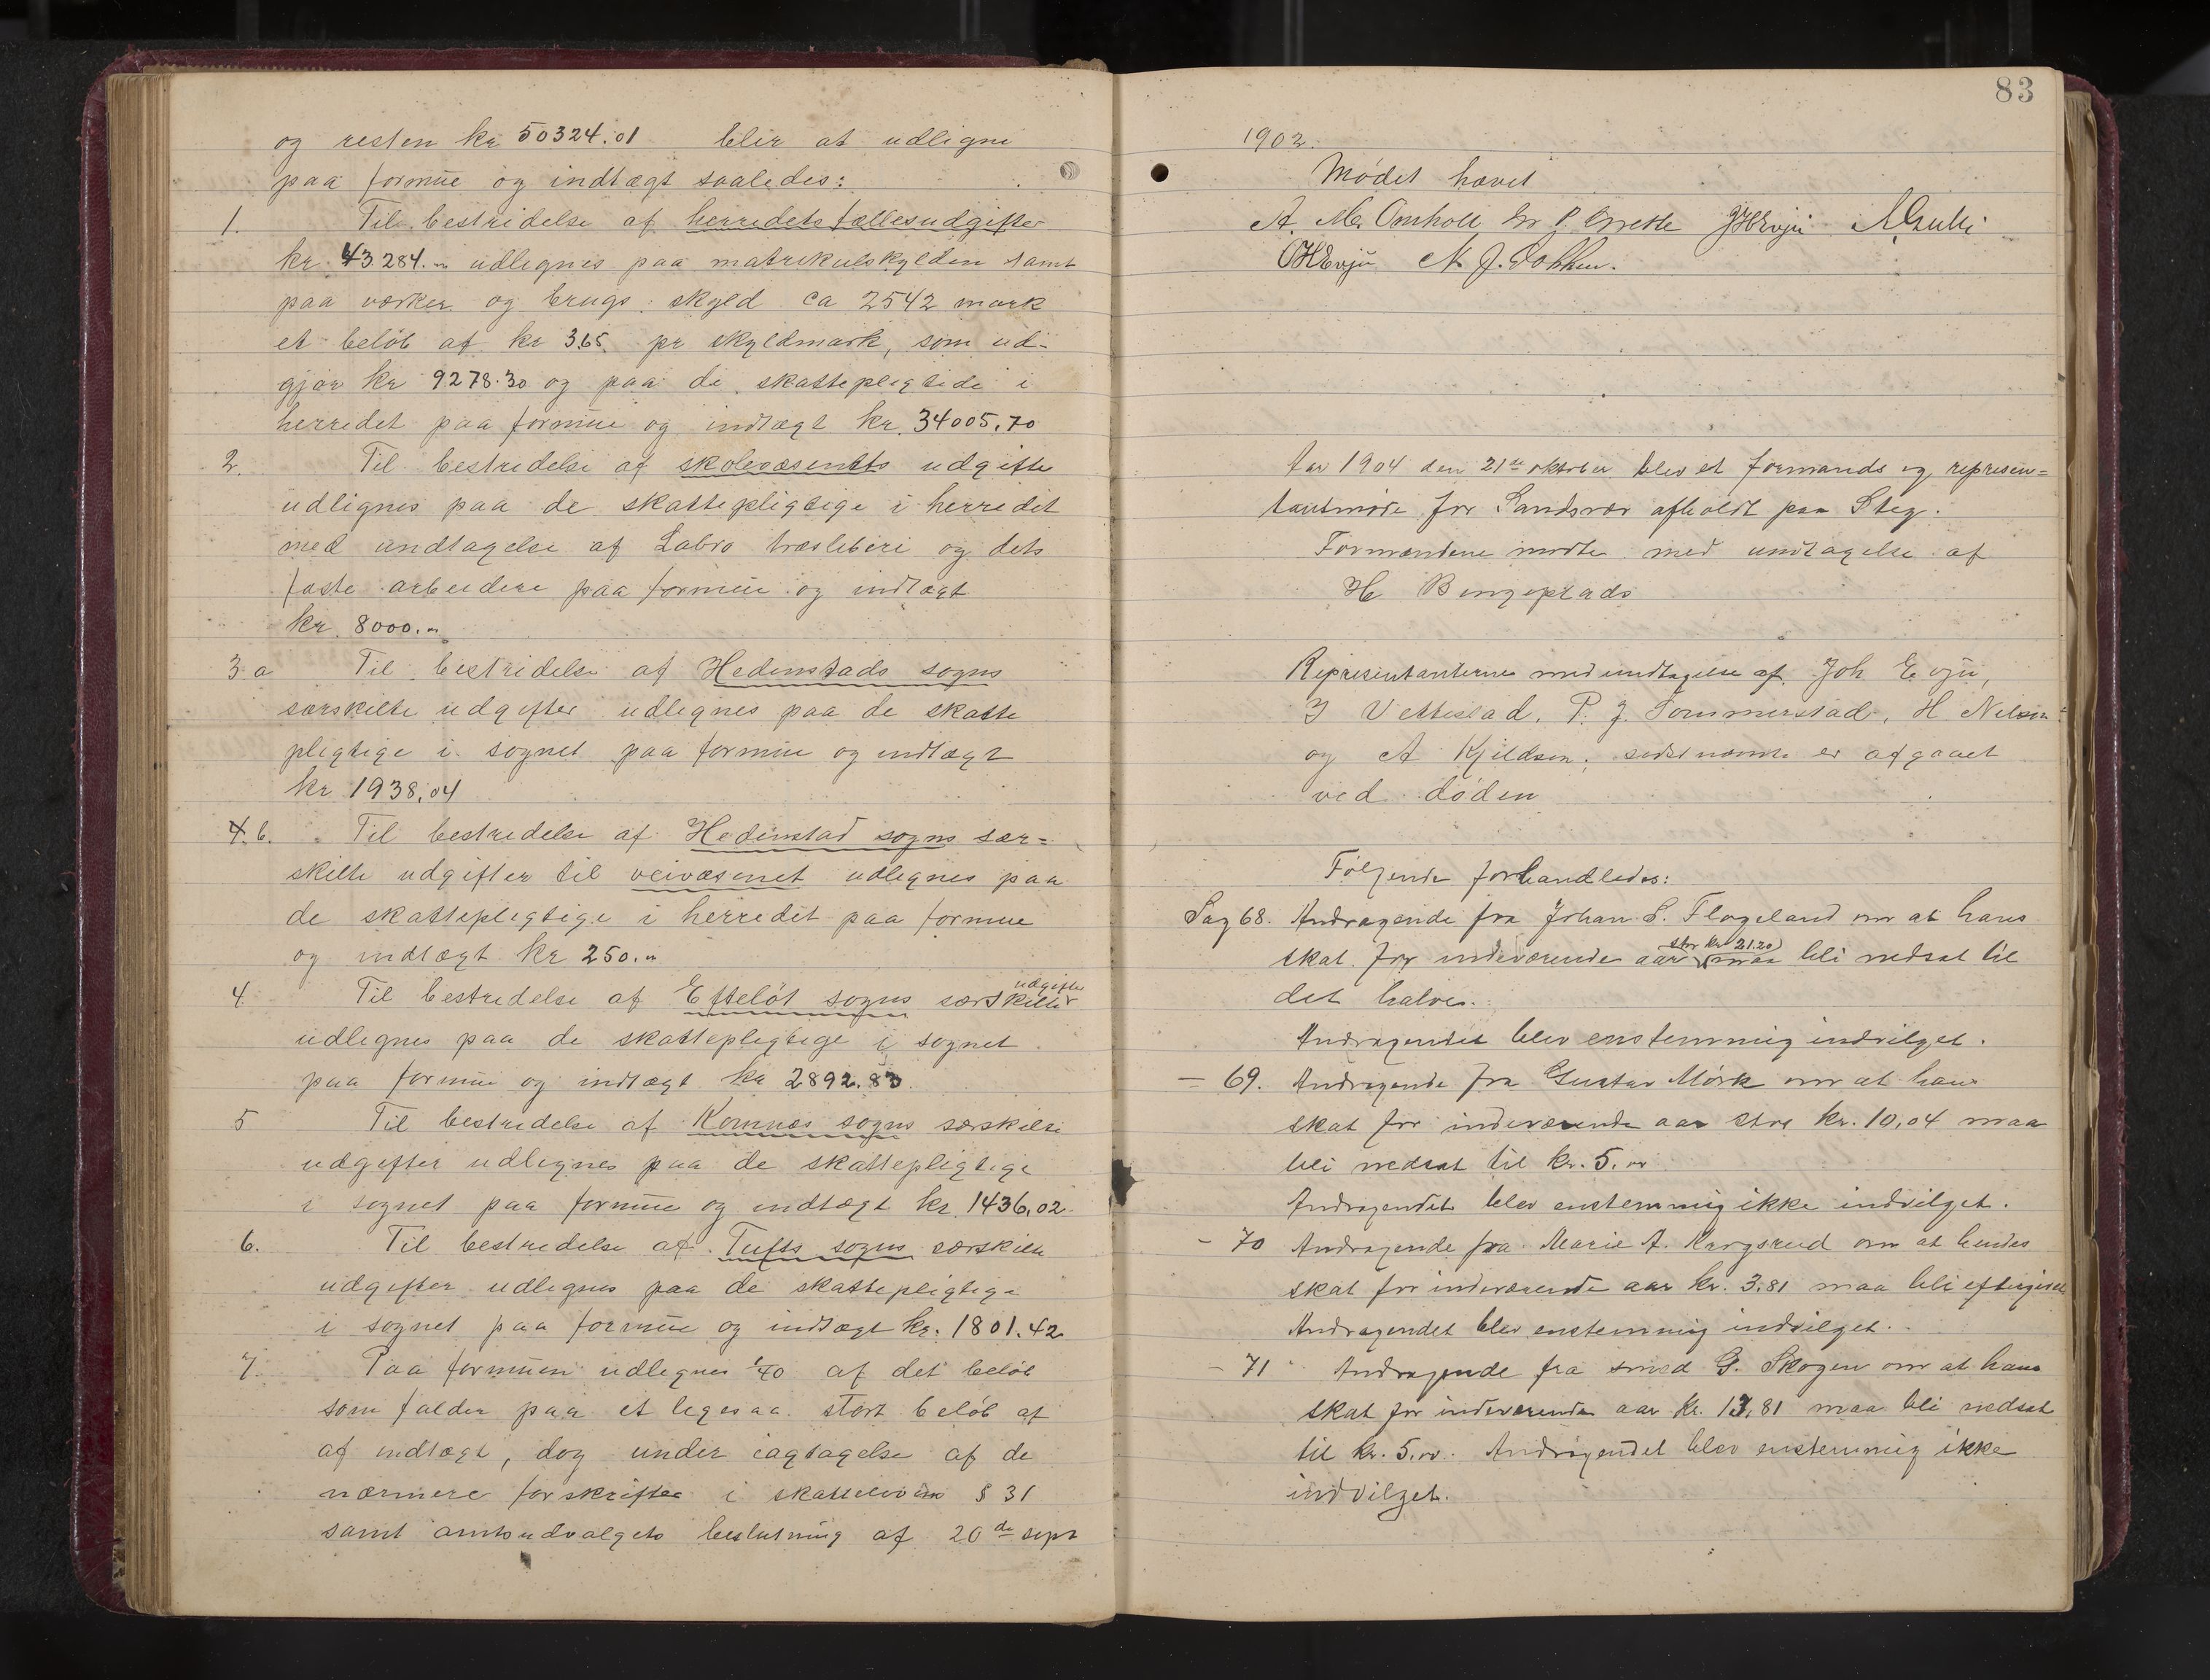 og resten kr 50324.01 blir at udligne
paa formue og indtægt saaledes:
1. Til bestridelse af herredets fællesudgifter
kr 43.284.- udlignes paa matrikulskylden samt
paa værker og brugs skyld ca 2542 mark
et beløb af kr 3.65 pr skyldmark, som ud-
gjør kr 9278.30 og paa de skattepligtide i
herredet paa formue og indtægt kr. 34005,70
2. Til bestridelse af skolevæsenets udgifte
udlignes paa de skattepligtige i herredet
med undtagelse af Labro træsliberi og dets
faste arbeidere paa formue og indtægt
kr. 8000.-
3 a Til bestridelse af Hedenstads sogns
særskilte udgifter udlignes paa de skatte
pligtige i sognet paa formue og indtægt
kr 1938,04
4. b. Til bestridelse af Hedenstad sogns sær=
skilte udgifter til veivæsenet udlignes paa
de skattepligtige i herredet paa formue
og indtægt kr 250.-
4 Til bestridelse af Efteløt sogns særskilte udgifter
udlignes paa de skattepligtige i sognet
paa formue og indtægt kr 2892.83.
5 Til bestridelse af Komnæs sogns særskilte
udgifter udlignes paa de skattepligtige
i sognet paa formue og indtægt kr. 1436,02.
6. Til bestridelse af Tufts sogns særskilte
udgifter udlignes paa de skattepligtige
i sognet paa formue og indtægt kr. 1801.42
7. Paa formuen udlignes 1/40 af det beløb
som falder paa et ligesaa stort beløb af
af indtægt, dog under iagtagelse af de
nærmere forskrifter i skatteloven § 31
samt amtsudvalgets beslutning af 20de sept
83
1902.
Mødet hævet
A. M. Omholt P. Grette JHEvju
OHEvju N. J. Dokken.
Aar 1904 den 21de oktober blev et formands og represen=
tantmøde for Sandsvær afholdt paa Steg.
Formændene mødte med undtagelse af
H Bingeplads
Representanterne med undtagelse af Joh Evju,
I Vettestad, P. J. Sommerstad, H Nilsen
og A Kjeldsen; sidstnævnte er afgaaet
ved døden
Følgende forhandledes:
Sag 68. Andragende fra Johan S. Flogeland om at hans
skat for indeværende aar stor kr 21.20 maa bli nedsat til
det halve.
Andragendet blev enstemmig indvilget.
— 69. Andragende fra Gustav Mørk om at hans
skat for indeværende aar stor kr. 10,04 maa
bli nedsat til kr. 5.00
Andragendet blev enstemmig ikke indvilget.
- 70 Andragende fra Marie A. om at hendes
skat for indeværende aar kr. 3.81 maa bli eftergivet
Andragendet blev enstemmig indvilget.
- 71 Andragende fra smed G. Skogen om at hans
skat for indeværende aar kr. 13,81 maa bli nedsat
til kr. 5.00. Andragendet blev enstemmig ikke
indvilget.